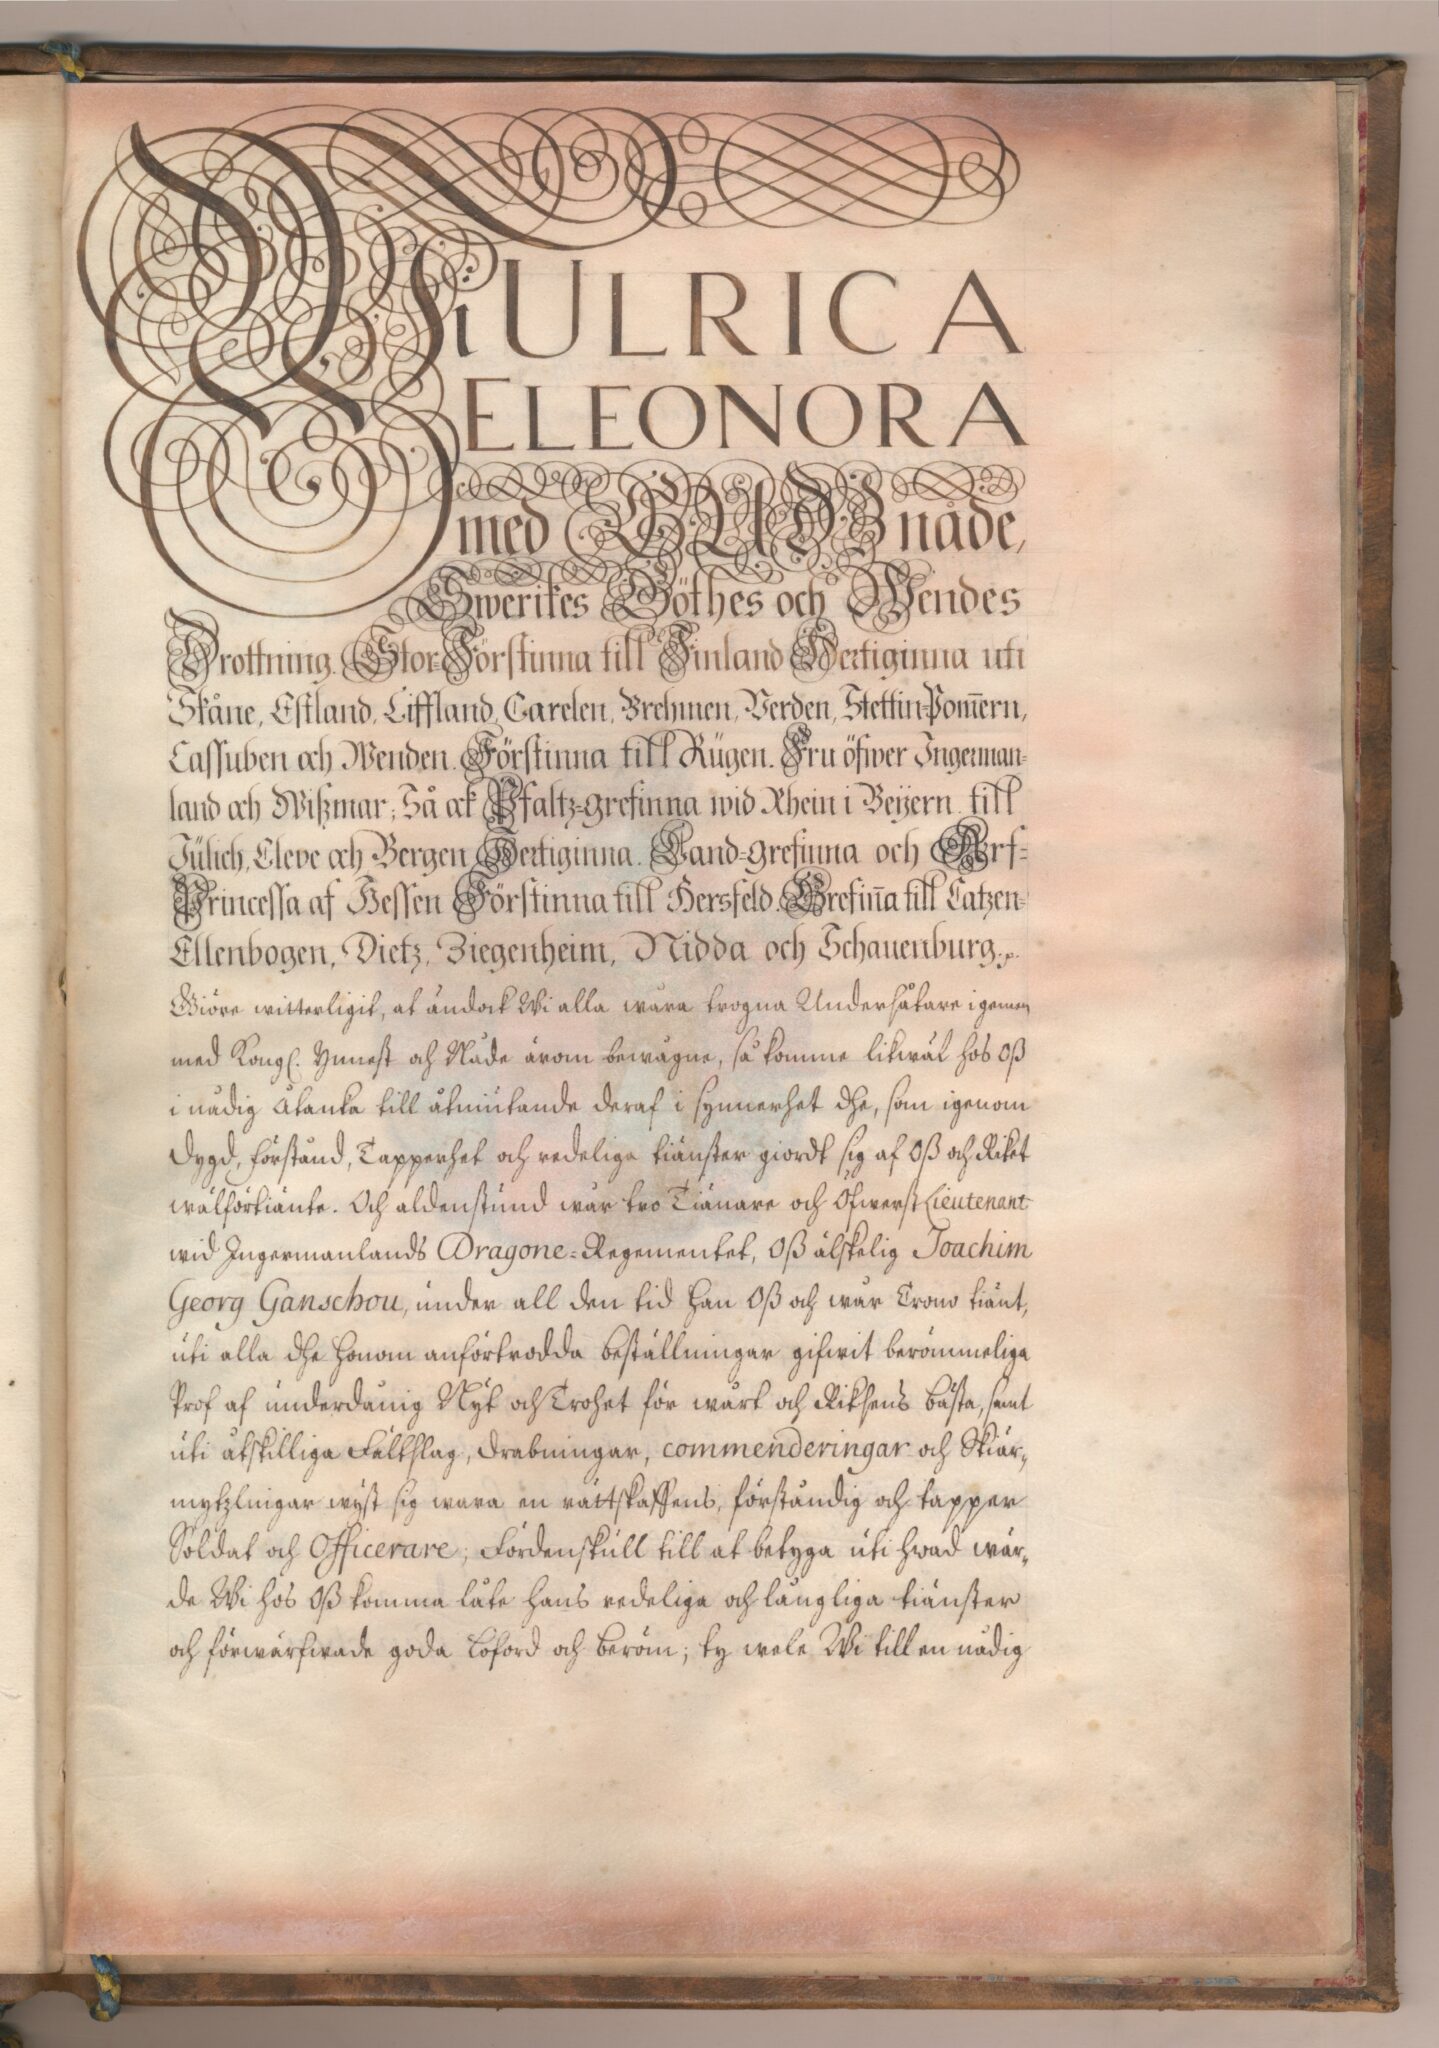 Wi ULRICA
ELEONORA
med GUDZ nåde,
Swerikes Göthes och Wendes
Drottning. Stor-Förstinna till Finland Hertiginna uti
Skåne, Estland, Liffland, Carelen, Brehmen, Verden, Stettin-Pom̄ern,
Cassuben och Wenden. Förstinna till Rügen. Fru öfwer Ingerman-
land och Wißmar; Så ock Pfaltz-grefinna wid Rhein i Beÿern till
Jülich, Cleve och Bergen Hertiginna. Land-grefinna och Arf-
Princessa af Hessen Förstinna till Hersfeld. Grefin̄a till Catzen-
Ellenbogen, Dietz, Ziegenheim, Nidda och Schauenburg. p.
Giöre witterligit, at ändock Wi alla wåra trogna Undersåtare i gemen
med Kongl. Ynnest och Nåde ärom bewågne, så komme likwäl hos Oß
i nådig åtanka till åtniutande deraf i synnerhet dhe, som igenom
dygd, förstånd, Tapperhet och redeliga tiänster giordt sig af Oß och Riket
wälförtiänte. Och aldenstund wår tro Tiänare och Öfwerst Lieutenant
wid Ingermanlands Dragone-Regementet, Oß älskelig Joachim
Georg Ganschou, under all den tid han Oß och wår Crono tiänt,
uti alla dhe honom anförtrodda beställningar gifwit berömmeliga
Prof af underdånig Nijt och Trohet för wårt och Riksens bästa, samt
uti åtskilliga Fältslag, drabningar, commenderingar och Skiär-
mytzlningar wijst sig wara en rättskaffens, förståndig och tapper
Soldat och Officerare; Fördenskull till at betyga uti hwad wär-
de Wi hos Oß komma låte hans redeliga och långliga tiänster
och förwärfwade goda Loford och beröm; ty wele Wi till en nådig